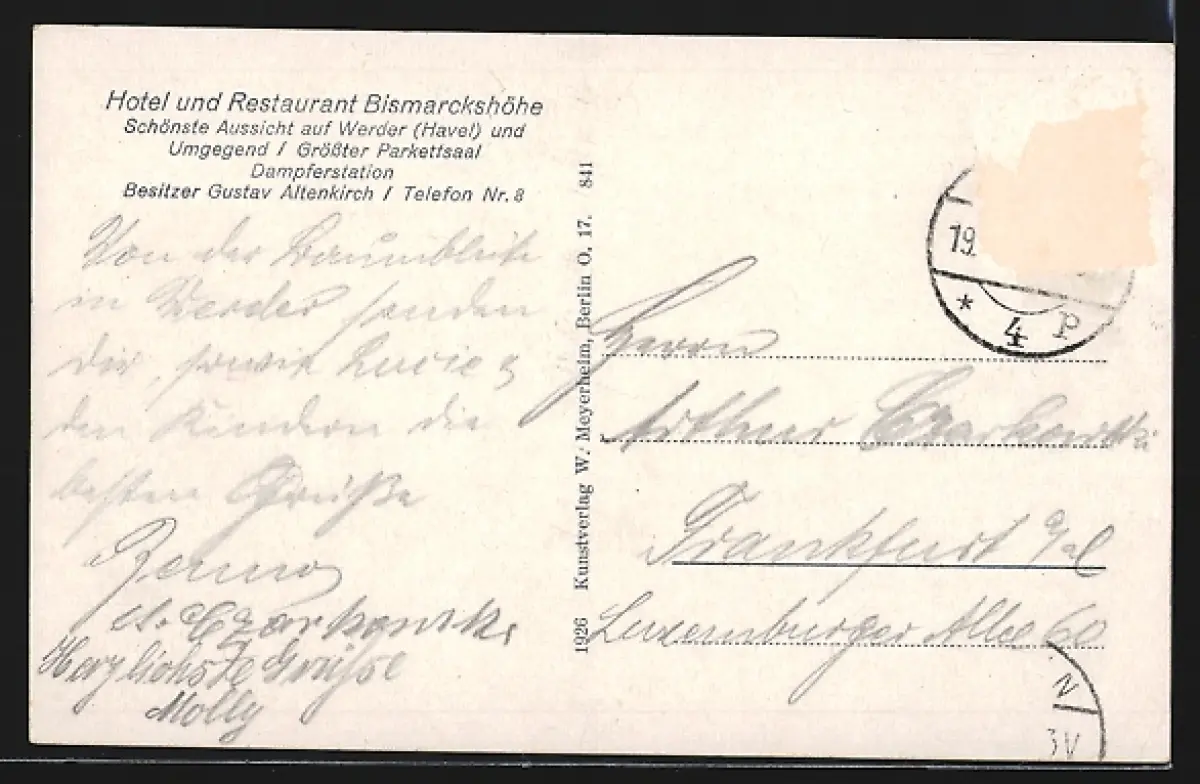 Hotel und Restaurant Bismarckshöhe
Schönste Aussicht auf Werder (Havel) und
Umgegend / Größter Parkettsaal
Dampferstation
Besitzer Gustav Altenkirch / Telefon Nr. 8
Von der Baumblüte
in Werder senden
Dir, sowie Lucie &
den Kindern die
besten Grüße
Benno
A. Czarkowski
Herzlichste Grüsse
Molly
1926 Kunstverlag W. Meyerheim, Berlin O. 17. 841
19.
* 4 P
Herrn
Arthur Czarkowski
Frankfurt
Luxemburger Allee 60